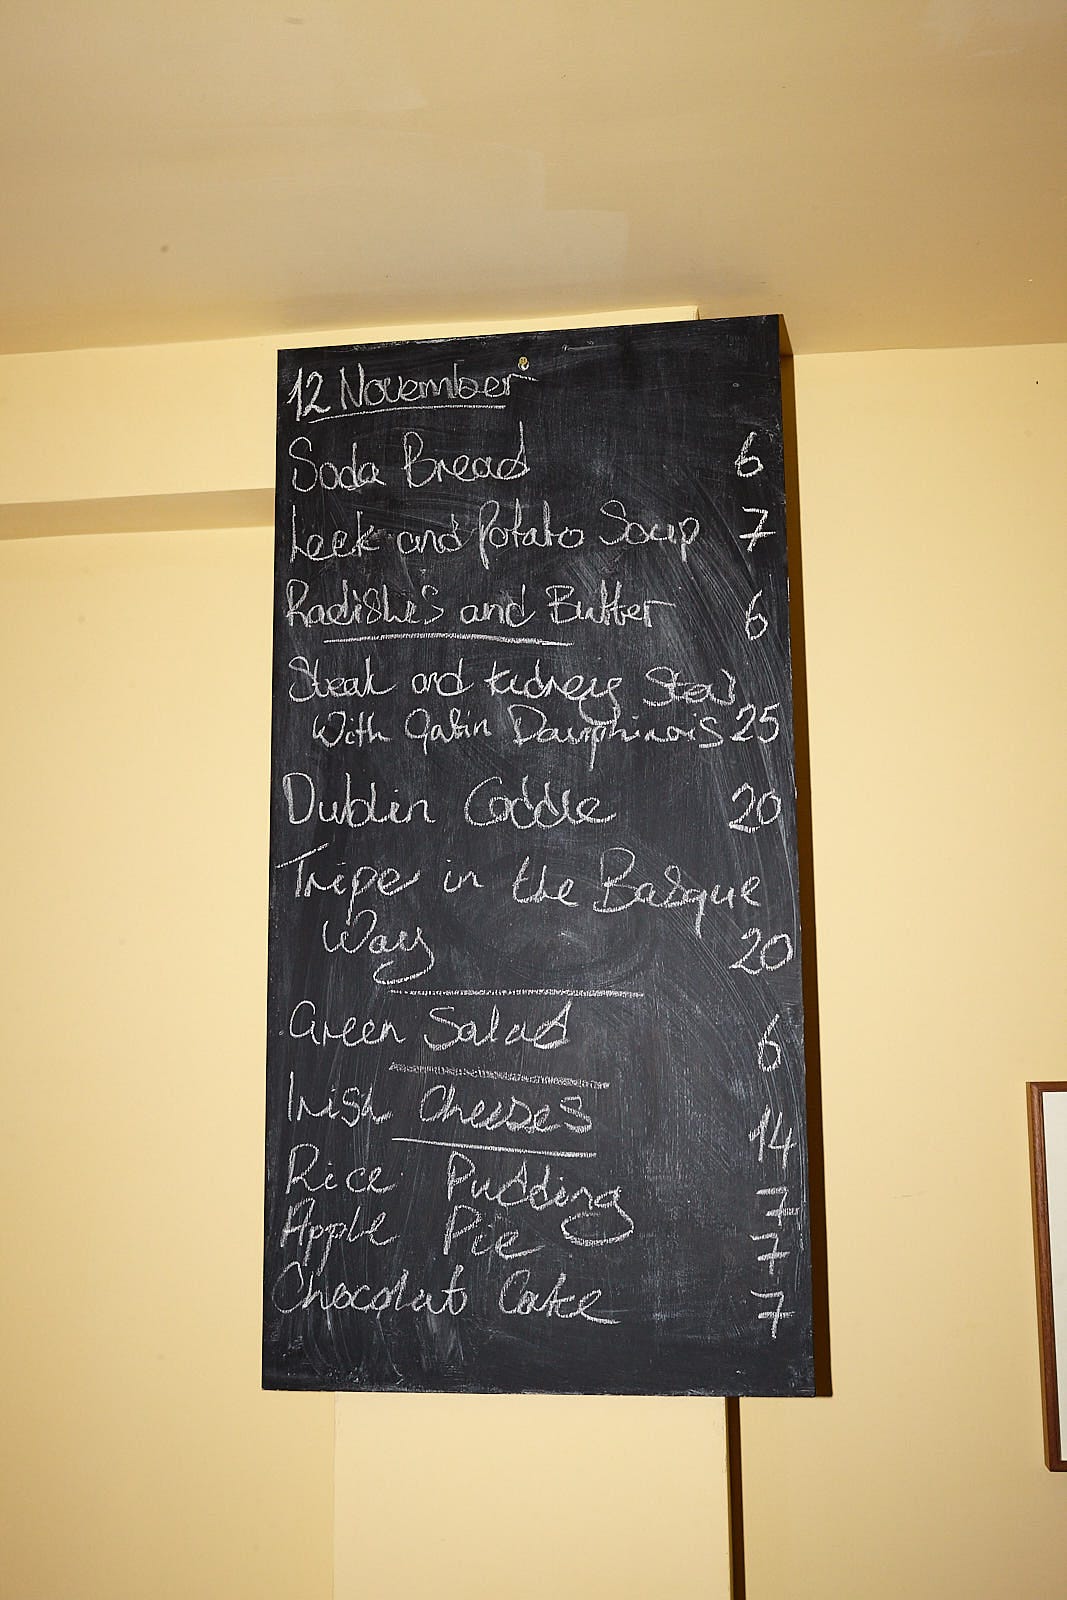 12 November
Soda Bread 6
Leek and Potato Soup 7
Radishes and Butter 6
Steak and Kidney Stew
With Gratin Dauphinois 25
Dublin Coddle 20
Tripe in the Basque
Way 20
Green Salad 6
Irish Cheeses 14
Rice Pudding 7
Apple Pie 7
Chocolate Cake 7